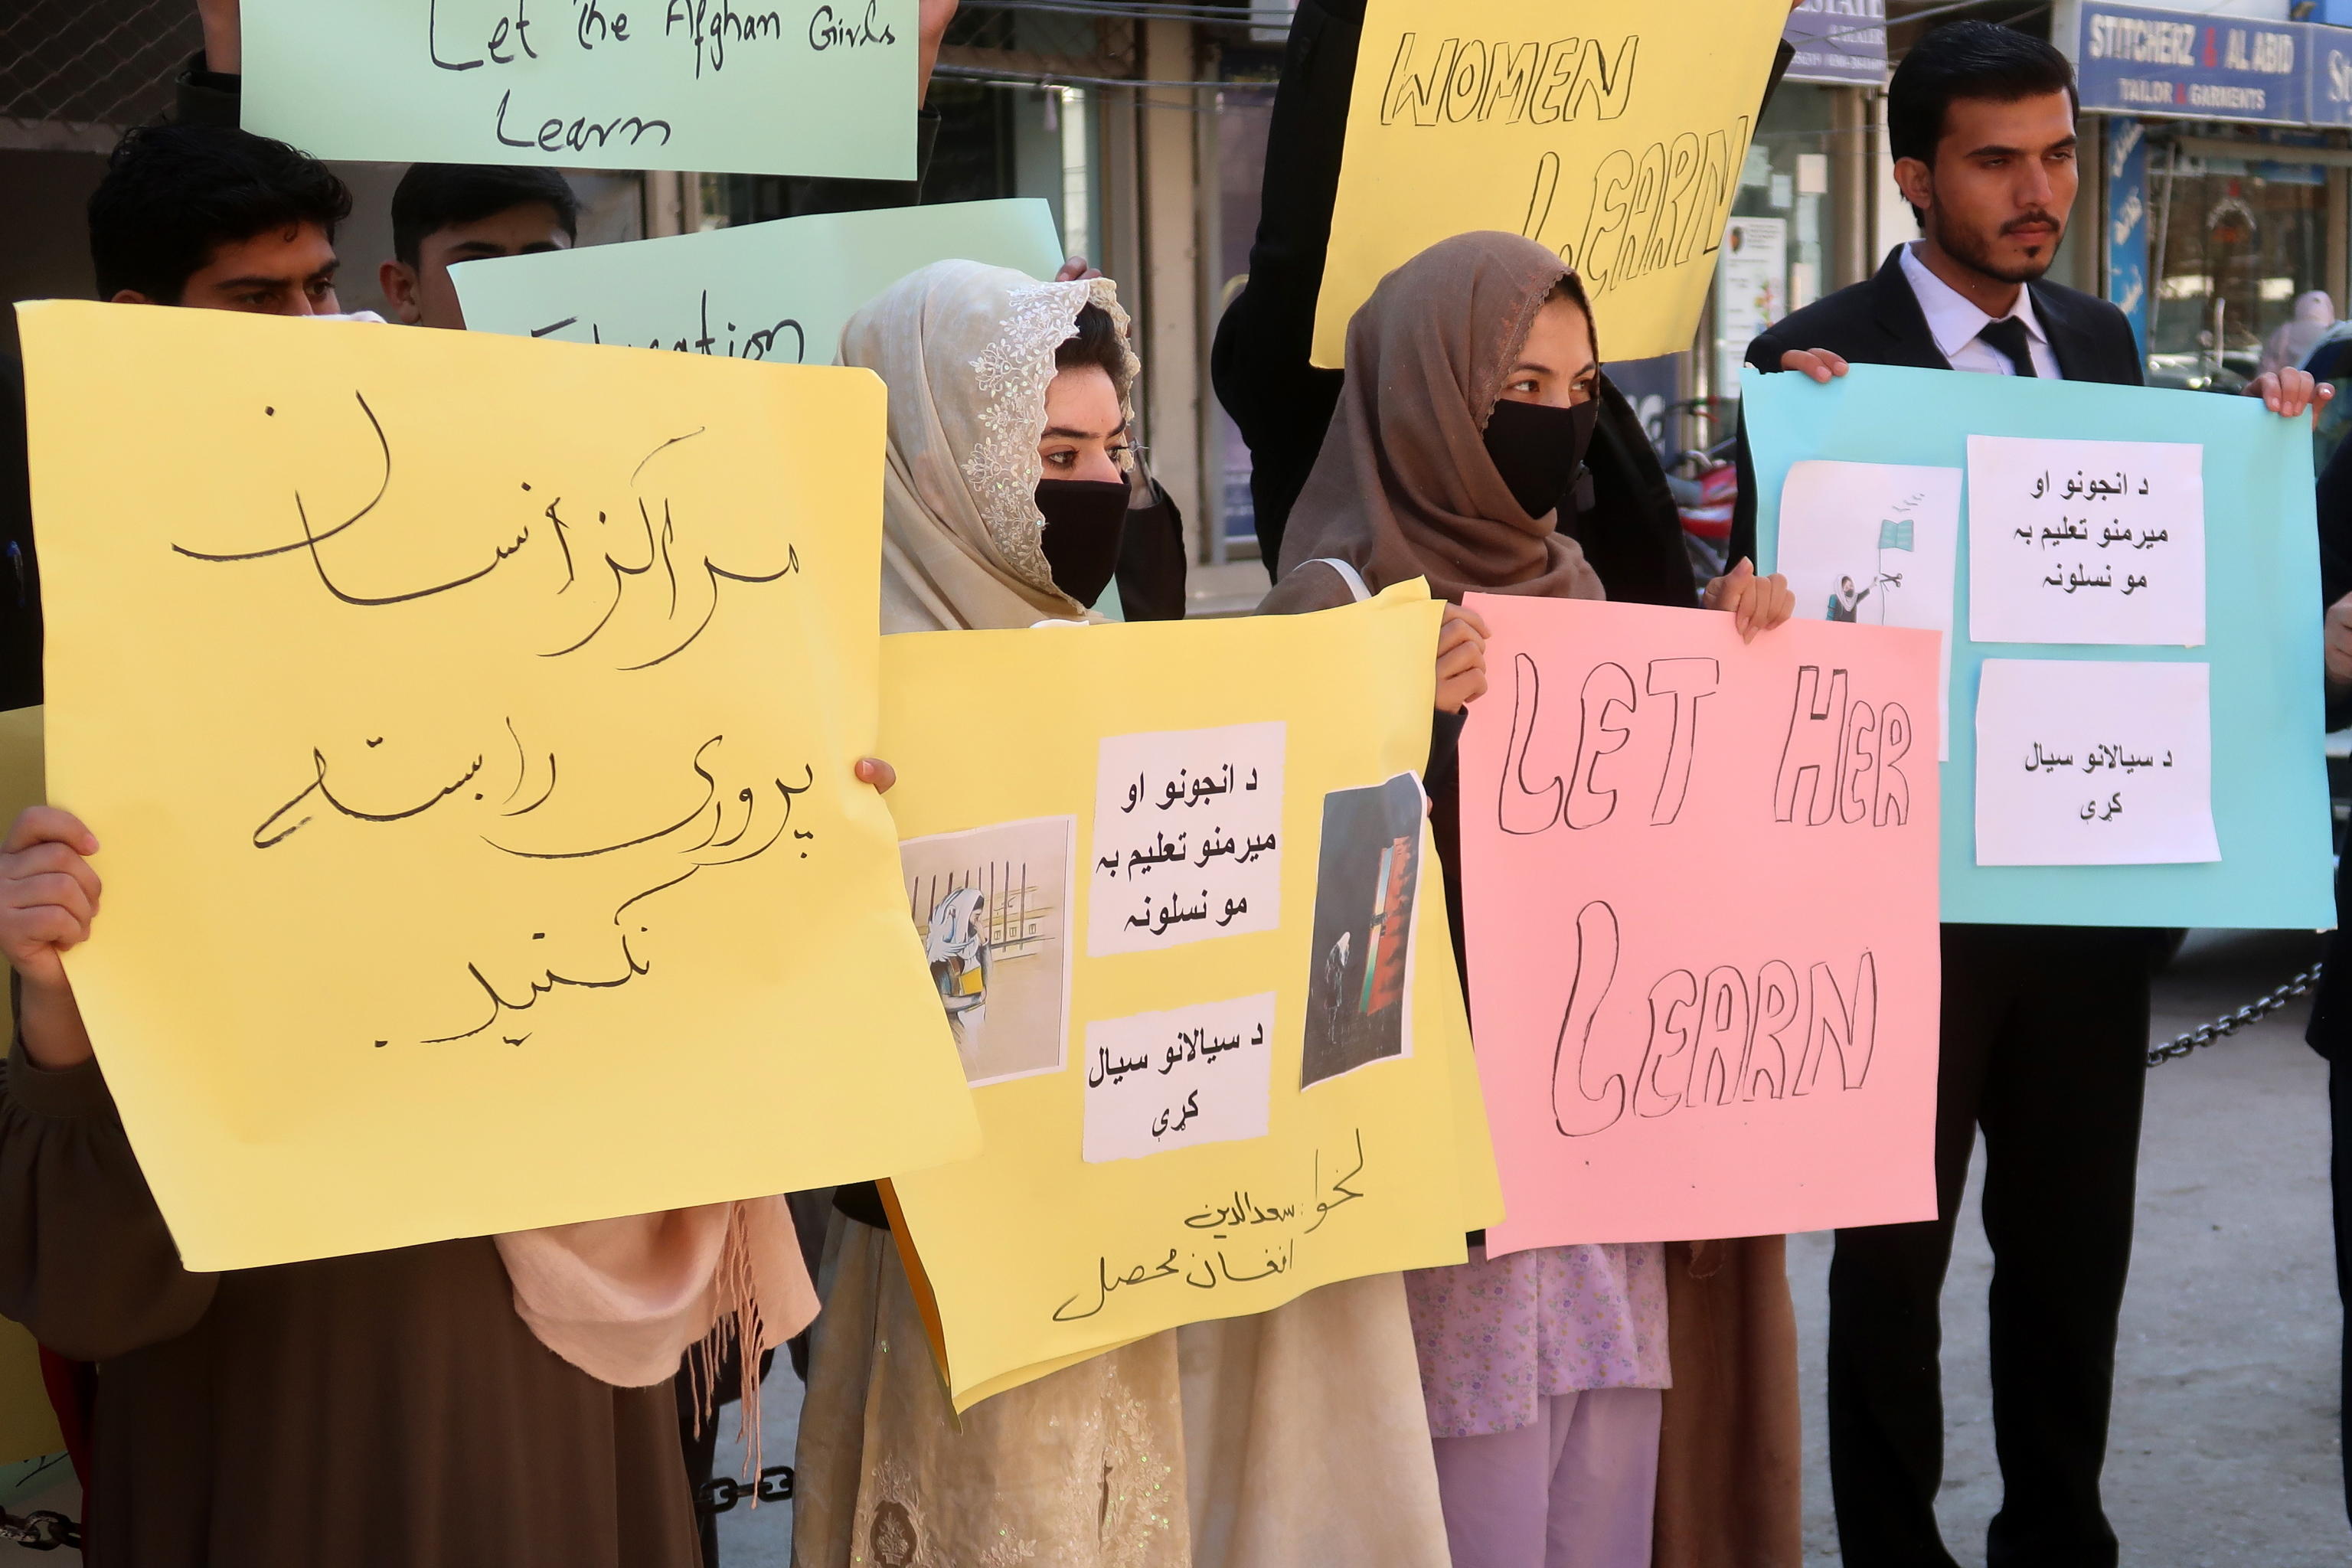 Let the Afghan Girls
Learn
Education
WOMEN
LEARN
ESTATE
STITCHERZ & AL ABID
TAILOR & GARMENTS
مراکز انسان
پروری را بسته
نکنید.
د انجونو او
میرمنو تعلیم به
مو نسلونه
د سیالانو سیال
کړي
لخوا: سعدالدین
افغان محصل
LET HER
LEARN
د انجونو او
میرمنو تعلیم به
مو نسلونه
د سیالانو سیال
کړي